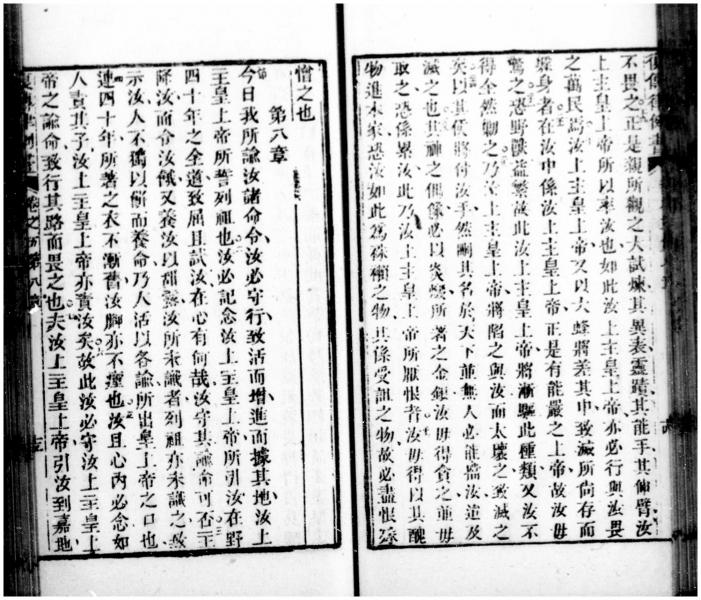 不畏之正是親所觀之大試煉其異表靈蹟其能手其伸臂汝
上主皇上帝所以率汝也如此汝上主皇上帝亦必行與汝畏
之萬民焉汝上主皇上帝又以大蜂將差其中致滅所尚存而
躱身者在汝中係汝上主皇上帝正是有能嚴之上帝故汝毋
驚之恐野獸益繁故此汝上主皇上帝將漸驅此種類又汝不
得全然勦之乃汝上主皇上帝將陷之與汝而太壞之致滅之
矣以其侯將付汝手然嗣其名於天下並無人必能當汝迨及
滅之也其神之偶像必以炎燬所著之金銀汝毋得貪之並毋
取之恐係累汝此乃汝上主皇上帝所厭恨者汝毋得以其醜
物進本家恐汝如此為殊嬾之物其係受詛之物故必盡恨
憎之也
第八章
今日我所諭汝諸命令汝必守行致活而增進而據其地汝上
主皇上帝所誓列祖也汝必記念汝上主皇上帝所引汝在野
四十年之全道致屈且試汝在心有何哉汝守其諭命可否主
降汝而令汝餓又養汝以甜露汝所未識者列祖亦未識之致
示汝人不獨以餅而養命乃人活以各諭所出皇上帝之口也
連四十年所著之衣不漸舊汝腳亦不瘇也汝且心內必念如
人責其子汝上主皇上帝亦責汝矣故此汝必守汝上主皇上
帝之諭命致行其路而畏之也夫汝上主皇上帝引汝到嘉地
卷之五 第八章